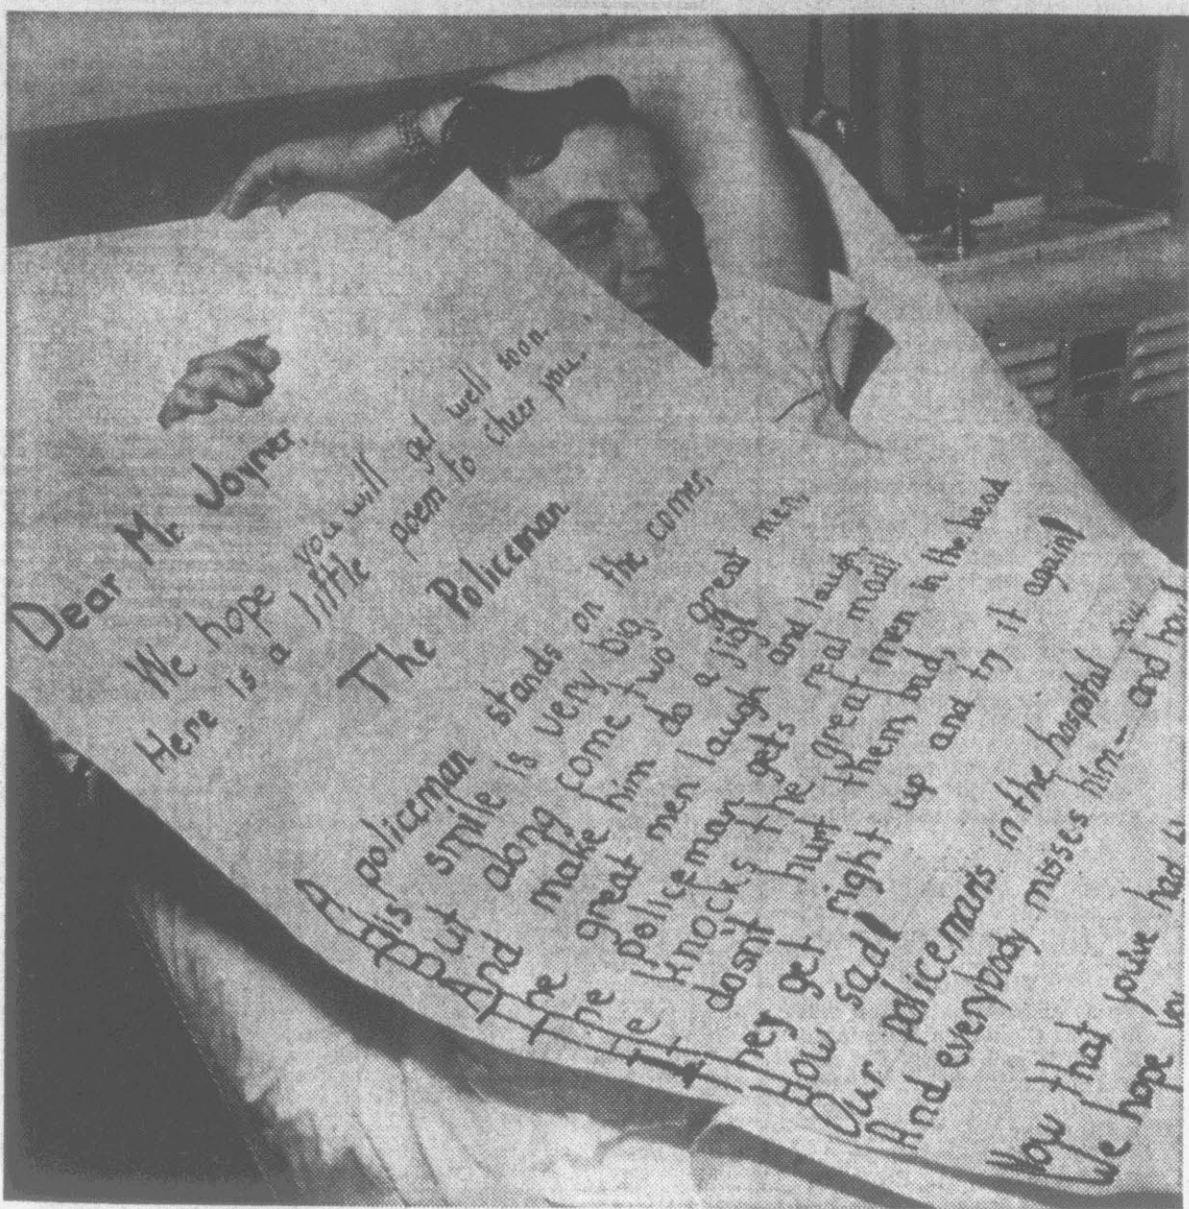 Dear Mr. Joyner,
We hope you will get well soon.
Here is a little poem to cheer you.
The Policeman
A policeman stands on the corner,
His smile is very big,
But along come two great men,
And make him do a jig!
The great men laugh and laugh,
The policeman gets real mad!
He knocks the great men in the head
It dosn't hurt them bad,
They get right up and try it again!
How sad!
Our policeman's in the hospital
And everybody misses him- and
Now that you've had
We hope